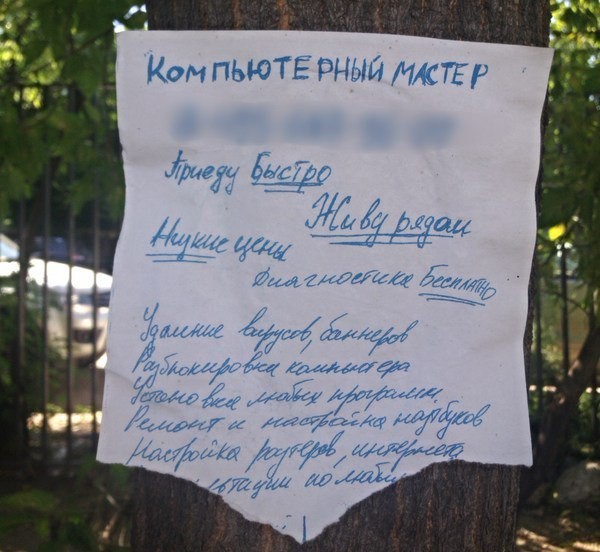 КОМПЬЮТЕРНЫЙ МАСТЕР
Приеду Быстро
Живу рядом
Низкие цены
Диагностика Бесплатно
Удаление вирусов, баннеров
Разблокировка компьютера
Установка любых программ
Ремонт и настройка ноутбуков
Настройка роутеров, интернета